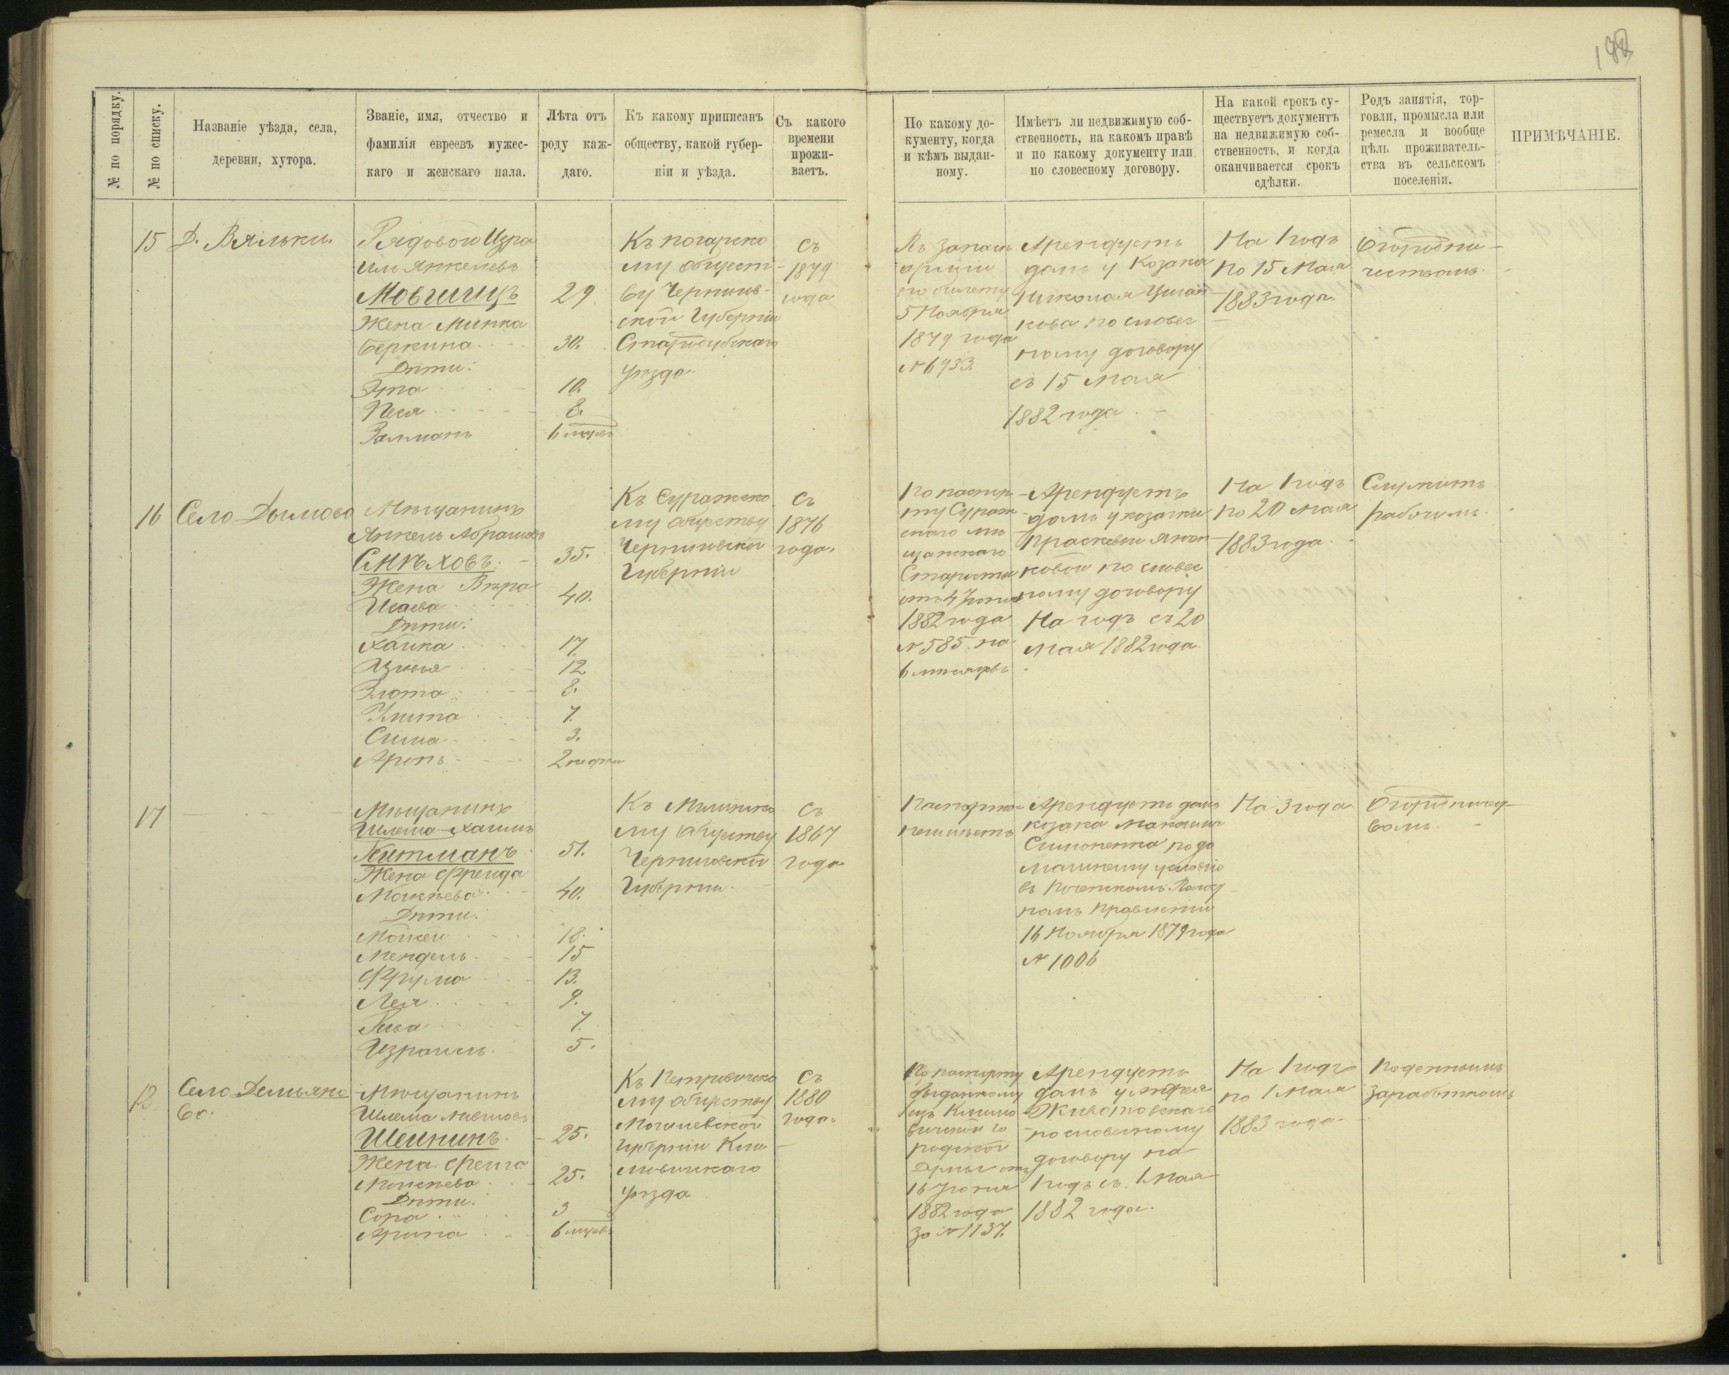 188
№ по порядку.
№ по списку.
Названіе уѣзда, села,
деревни, хутора.
Званіе, имя, отчество и
фамилія евреевъ мужес-
каго и женскаго пала.
Лѣта отъ
роду каж-
даго.
Къ какому приписанъ
обществу, какой губер-
ніи и уѣзда.
Съ какого
времени
прожи-
ваетъ.
По какому до-
кументу, когда
и кѣмъ выдан-
ному.
Имѣетъ ли недвижимую соб-
ственность, на какомъ правѣ
и по какому документу или
по словесному договору.
На какой срокъ су-
ществуетъ документъ
на недвижимую соб-
ственность, и когда
оканчивается срокъ
сдѣлки.
Родъ занятія, тор-
говли, промысла или
ремесла и вообще
цѣль проживатель-
ства въ сельскомъ
поселеніи.
ПРИМѢЧАНІЕ.
15
Д. Вяльки.
Рядовой Изра
иль Янкелевъ
Мовшицъ
Жена Минка
Беркина
Дѣти:
Эта
Песя
Залманъ
29
30.
10.
8.
6 мѣсяц
Къ погарско
му общест-
ву Чернигов-
ской Губерніи
Стародубскаго
уѣзда.
Съ
1879
года
Въ запасъ
арміи
по билету
5 Ноября
1879 года
№ 6933.
Арендуетъ
домъ у Козака
Николая
кова по словес
ному договору
съ 15 Мая
1882 года
На 1 годъ
по 15 Мая
1883 года.
Огородни-
чествомъ.
16
Село Дымово
Мѣщанинъ
Янкель Абрамовъ
Смѣховъ.
Жена Вѣра
Исаева
Дѣти:
Хайка
Цивья
Злота
Улита
Сима
Аронъ
35.
40.
17
12
8.
7.
3.
2 недѣли
Къ Суражско
му обществу
Черниговской
Губерніи
Съ
1876
года.
По паспор
ту Сураж
скаго мѣ
щанскаго
Старосты
отъ 4 Іюня
1882 года
№ 585. на
6 мѣсяцевъ
Арендуетъ
домъ у козачки
Прасковьи
ковой по словес
ному договору
На годъ съ 20
Мая 1882 года.
На 1 годъ
по 20 Мая
1883 года.
Служитъ
рабочимъ.
17
Мѣщанинъ
Шлема-Хаимъ
Китманъ
Жена Фрейда
Моисеева
Дѣти.
Мойсей
Мендель
Фрума
Лея
Рива
Израиль
51.
40.
18.
15
13.
9.
7.
5.
Къ Мглинско
му обществу
Черниговской
Губерніи.
Съ
1867
года
Паспорта
неимѣетъ
Арендуетъ домъ
козака Максима
Симоненка по до
машнему условію
въ Почепскомъ Волос
номъ Правленіи
16 Ноября 1879 года
№ 1006
На 3 года
Огородничест-
вомъ.
18
Село Демьянс
во.
Мѣщанинъ
Шлема Лившовъ
Шейнинъ.
Жена Фрейга
Моисеева
Дѣти:
Сора
Арина
25.
25.
3
6 мѣсяц
Къ Петровичско
му обществу
Могилевской
Губерніи Кли
мовичскаго
уѣзда
Съ
1880
года.
По паспорту
выданному
изъ Климо
вичской го
родской
Думы отъ
16 Іюня
1882 года
за № 1137.
Арендуетъ
домъ у
Животовскаго
по словесному
договору на
1 годъ съ 1 Мая
1882 года.
На 1 годъ
по 1 Мая
1883 года.
Поденнымъ
заработкомъ